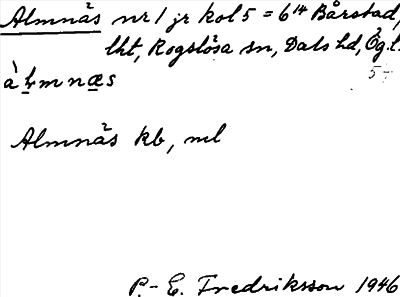 Almnäs nr 1 jr kol 5 = 6¹⁴ Bårstad,
lht, Rogslösa sn, Dals hd, Ög. l.
5-
àḷmnæs
Almnäs kb, ml
P.-E. Fredriksson 1946